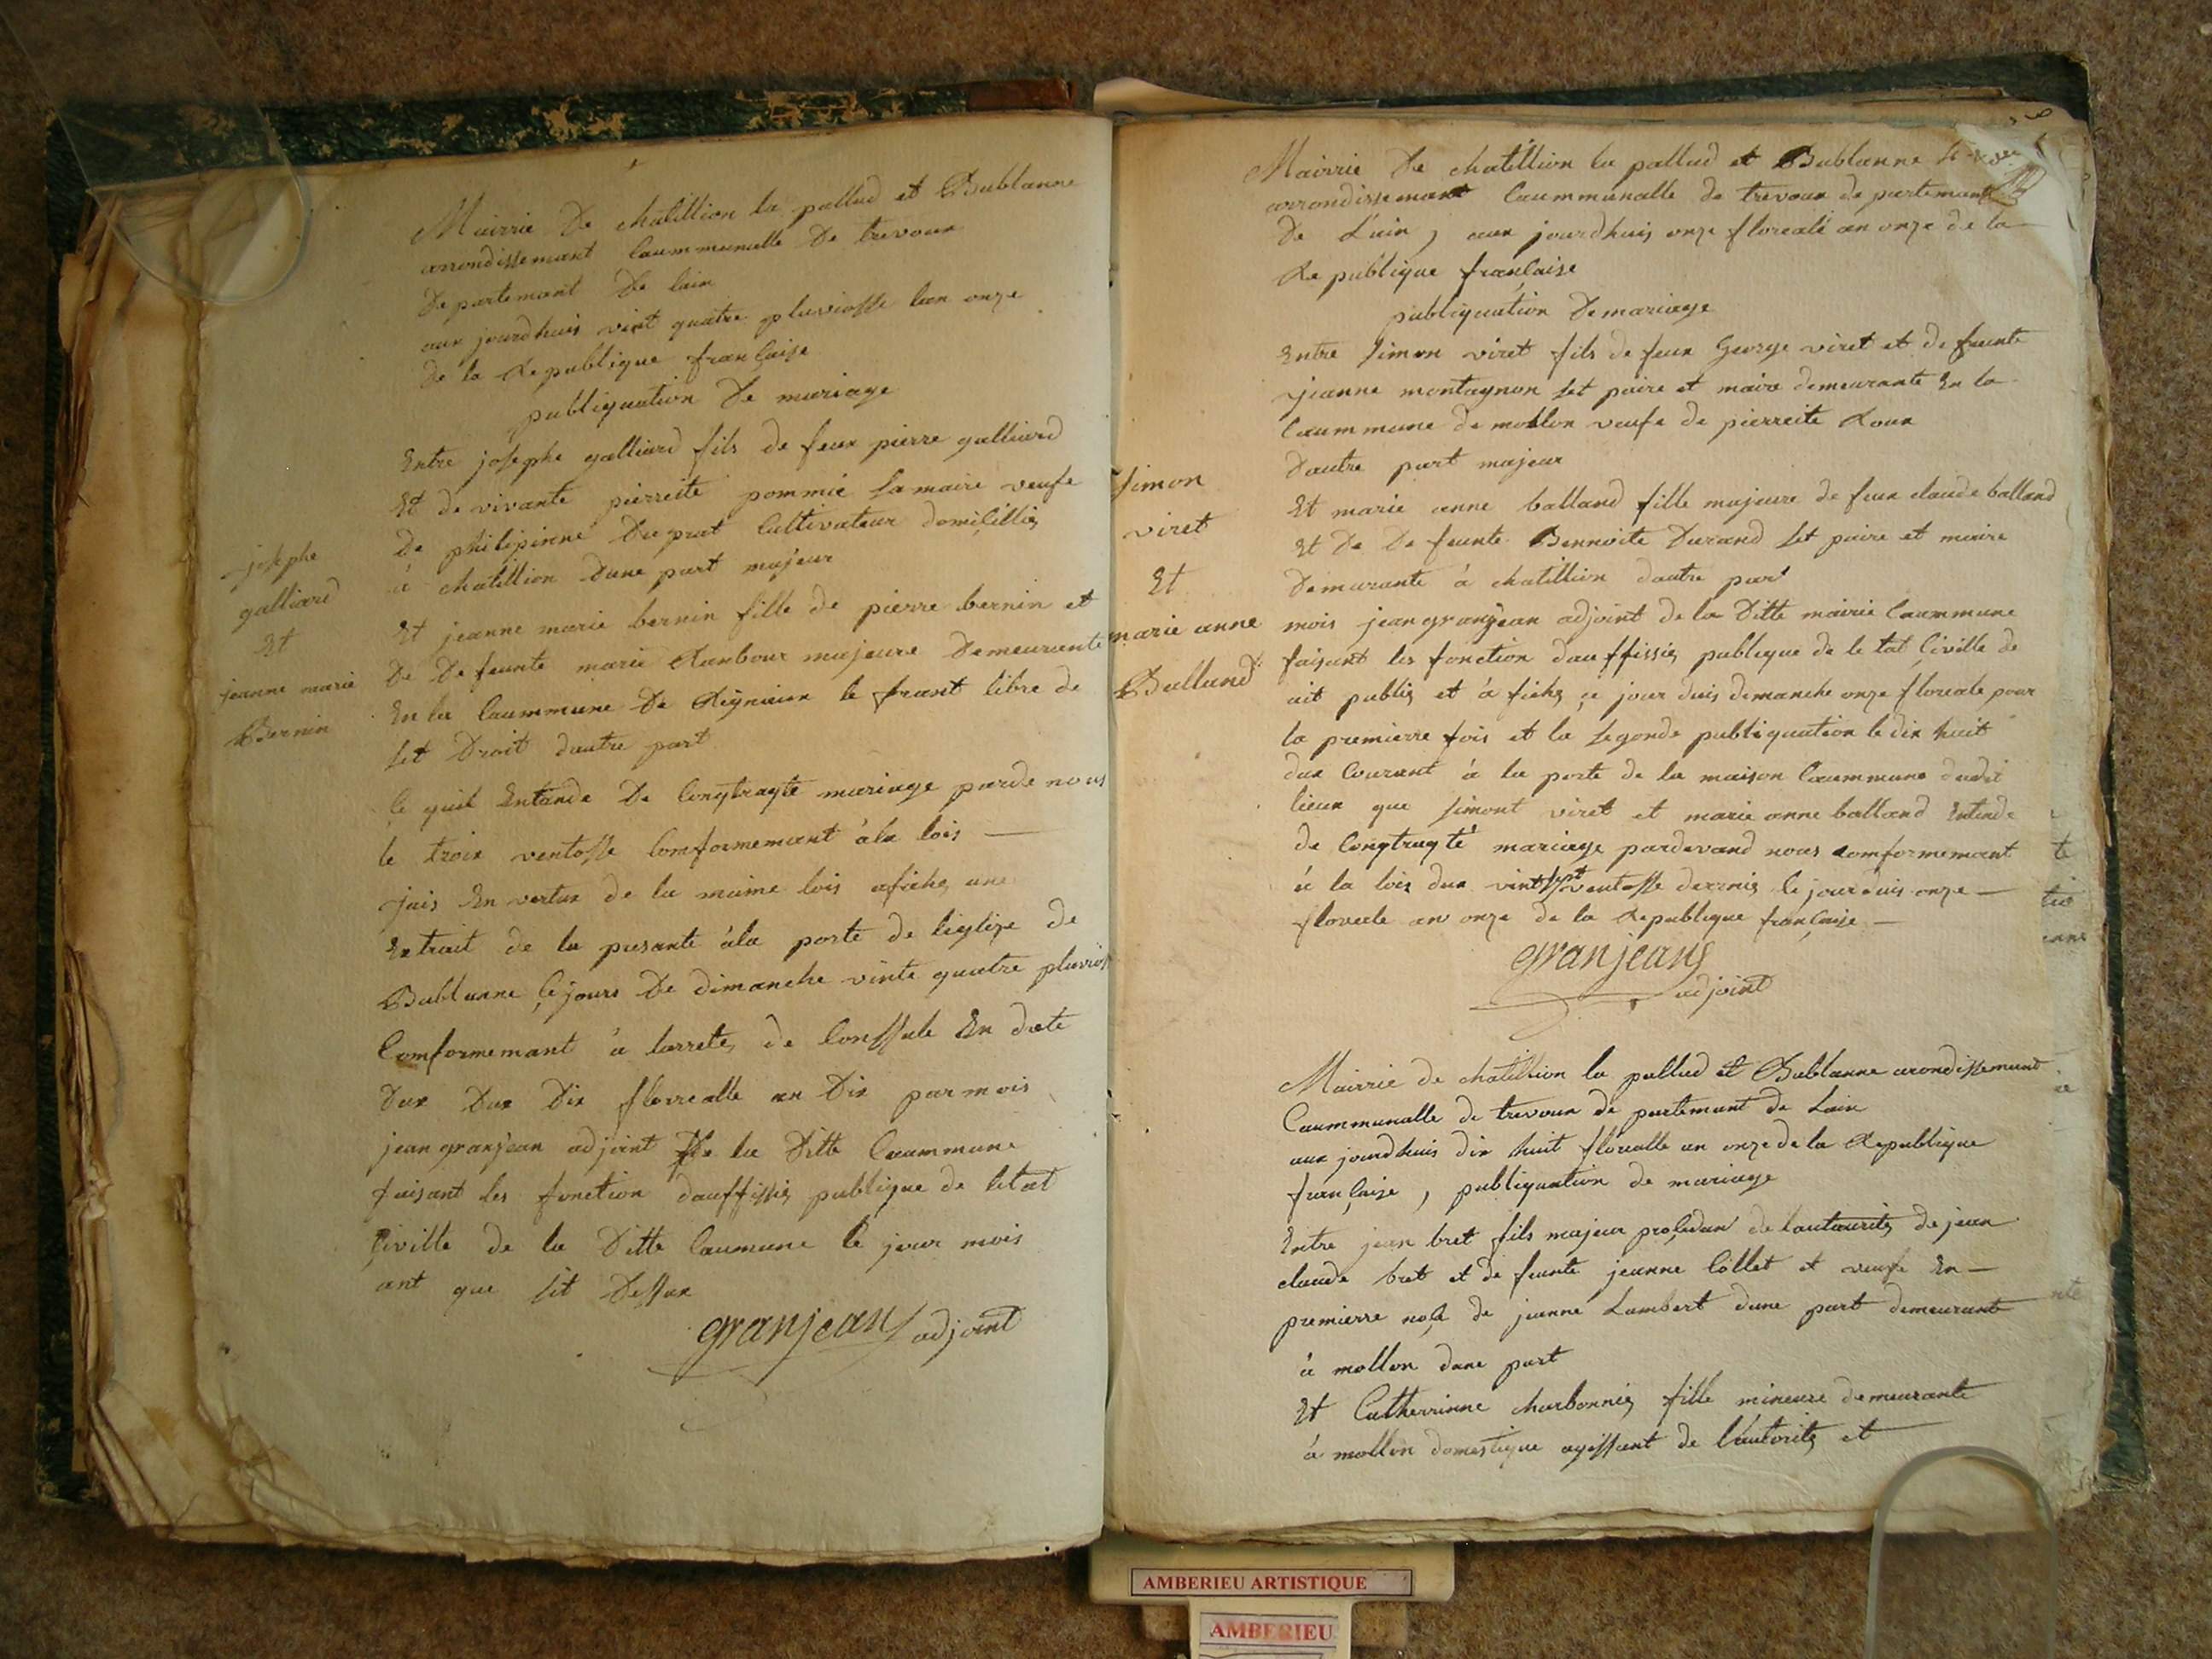 Mairrie De chatillion la pallud et Bublanne
arrondissemant Caummunalle De trevoux
Departemant De lain
aux jourdhuis vint quatre pluviosse lan onze
de la Republique française
publiquation De mariage
Entre josephe galliard fils de feux pierre galliard
Et de vivante pierreite pommié sa maire veufe
De philipinne Du prat Cultivateur domicillié
à chatillion Dune part majeur
josephe
galliard
Et
jeanne marie
Bernin
Et jeanne marie bernin fille de pierre bernin et
De De feunte marie majeure Demeurante
En la Caummune De le frant libre de
set Droit dautre part
Ce quil Entande De Congtragté mariage parde nous
le troix ventosse Comformemant à la lois
jais En vertux de la maime lois afiché une
Extrait de la presante à la porte de léglize de
Bublanne ce jours De dimanche vinte quatre pluvios
Comformemant à larreté de Conssule En date
Dux Dux Dix florealle an Dix par mois
jean granjean adjoint De la Ditte Caummune
faisant les fonction dauffissié publique de letat
Civille de la Ditte Caumune le jour mois
ant que sit Dessux
granjean adjoint
Mairrie De chatillion la pallud et Bublanne
arrondissemant Caummunalle de trevoux de partemant
De L'ain, aux jourdhuis onze florealé an onze de la
Republique française
publiquation De mariage
Entre simon viret fils de feux George viret et de feunte
jeanne montagnon set paire et maire demeurante En la
Caummune de mollon veufe de pierreite Roux
Dautre part majeux
simon
viret
Et
marie anne
Balland
Et marie anne balland fille majeure de feux claude balland
Et De De feunte Bennoite Durand set paire et maire
Demurante à chatillion dautre par
mois jean granjean adjoint de la Ditte mairie Caummune
faisant les fonction dauffissié publique de le tat Civille de
ait publié et à fiché ce jour duis dimanche onze floreale pour
la premierre fois et la segonde publiquation le dix huit
dux Courant à la porte de la maison Caummune dudit
lieux que simont viret et marie anne balland Entende
de Congtragté mariage pardevand nous comformemant
à la lois dux vint sept ventosse dernié le jourduis onze
floreale an onze de la Republique française
granjean
adjoint
Mairrie de chatillion la pallud et Bublanne arondissemant
Caummunalle de trevoux de partemant de Lain
aux jourdhuis dix huit florealle an onze de la Republique
française, publiquation de mariage
Entre jean bret fils majeur de lautaurité de jean
claude bret et de feunte jeanne Collet et veufe En
premierre noce de jeanne Lambert dune part demeurante
à mollon dune part
Et Catherrinne charbonnié fille mineure demeurante
à mollon domestique agissant de lautorité et
AMBERIEU ARTISTIQUE
AMBERIEU